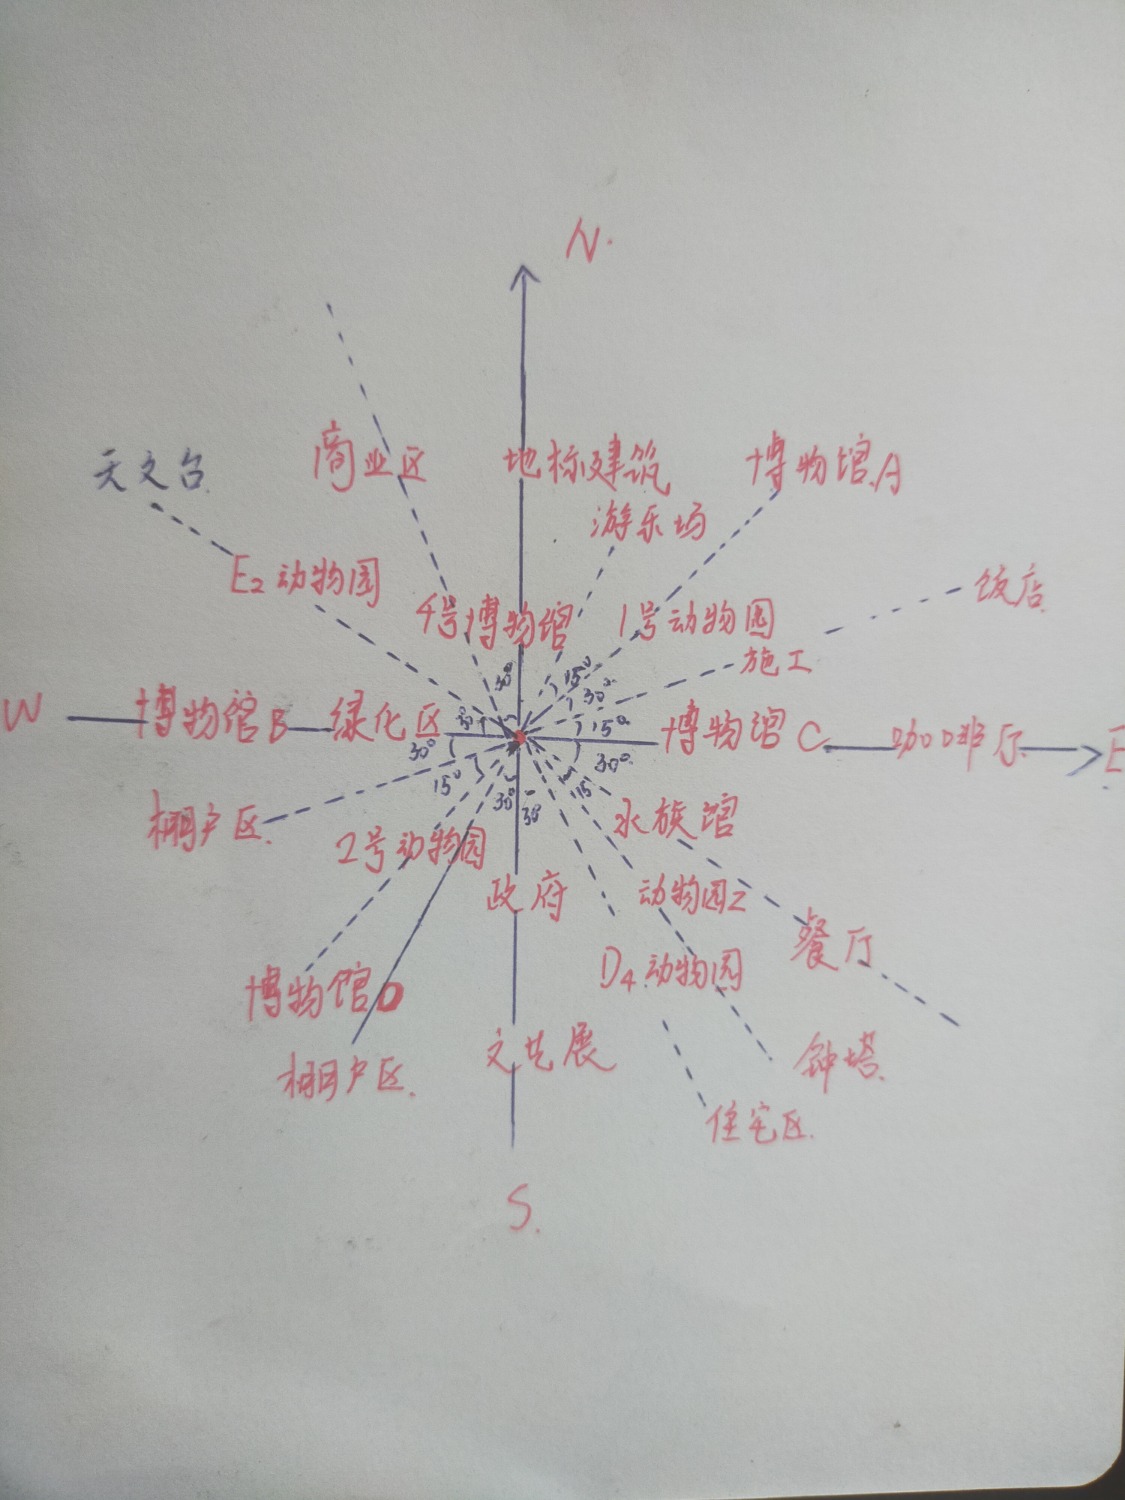 N.
商业区
地标建筑
博物馆A
天文台
游乐场
E2动物园
饭店
4号博物馆
1号动物园
施工
30°
15°
30°
W
博物馆B
绿化区
30°
15°
博物馆C
咖啡厅
E
30°
30°
15°
15
30°
30
棚户区
2号动物园
水族馆
政府
动物园2
餐厅
博物馆D
D4动物园
棚户区
文艺展
钟塔
住宅区
S.